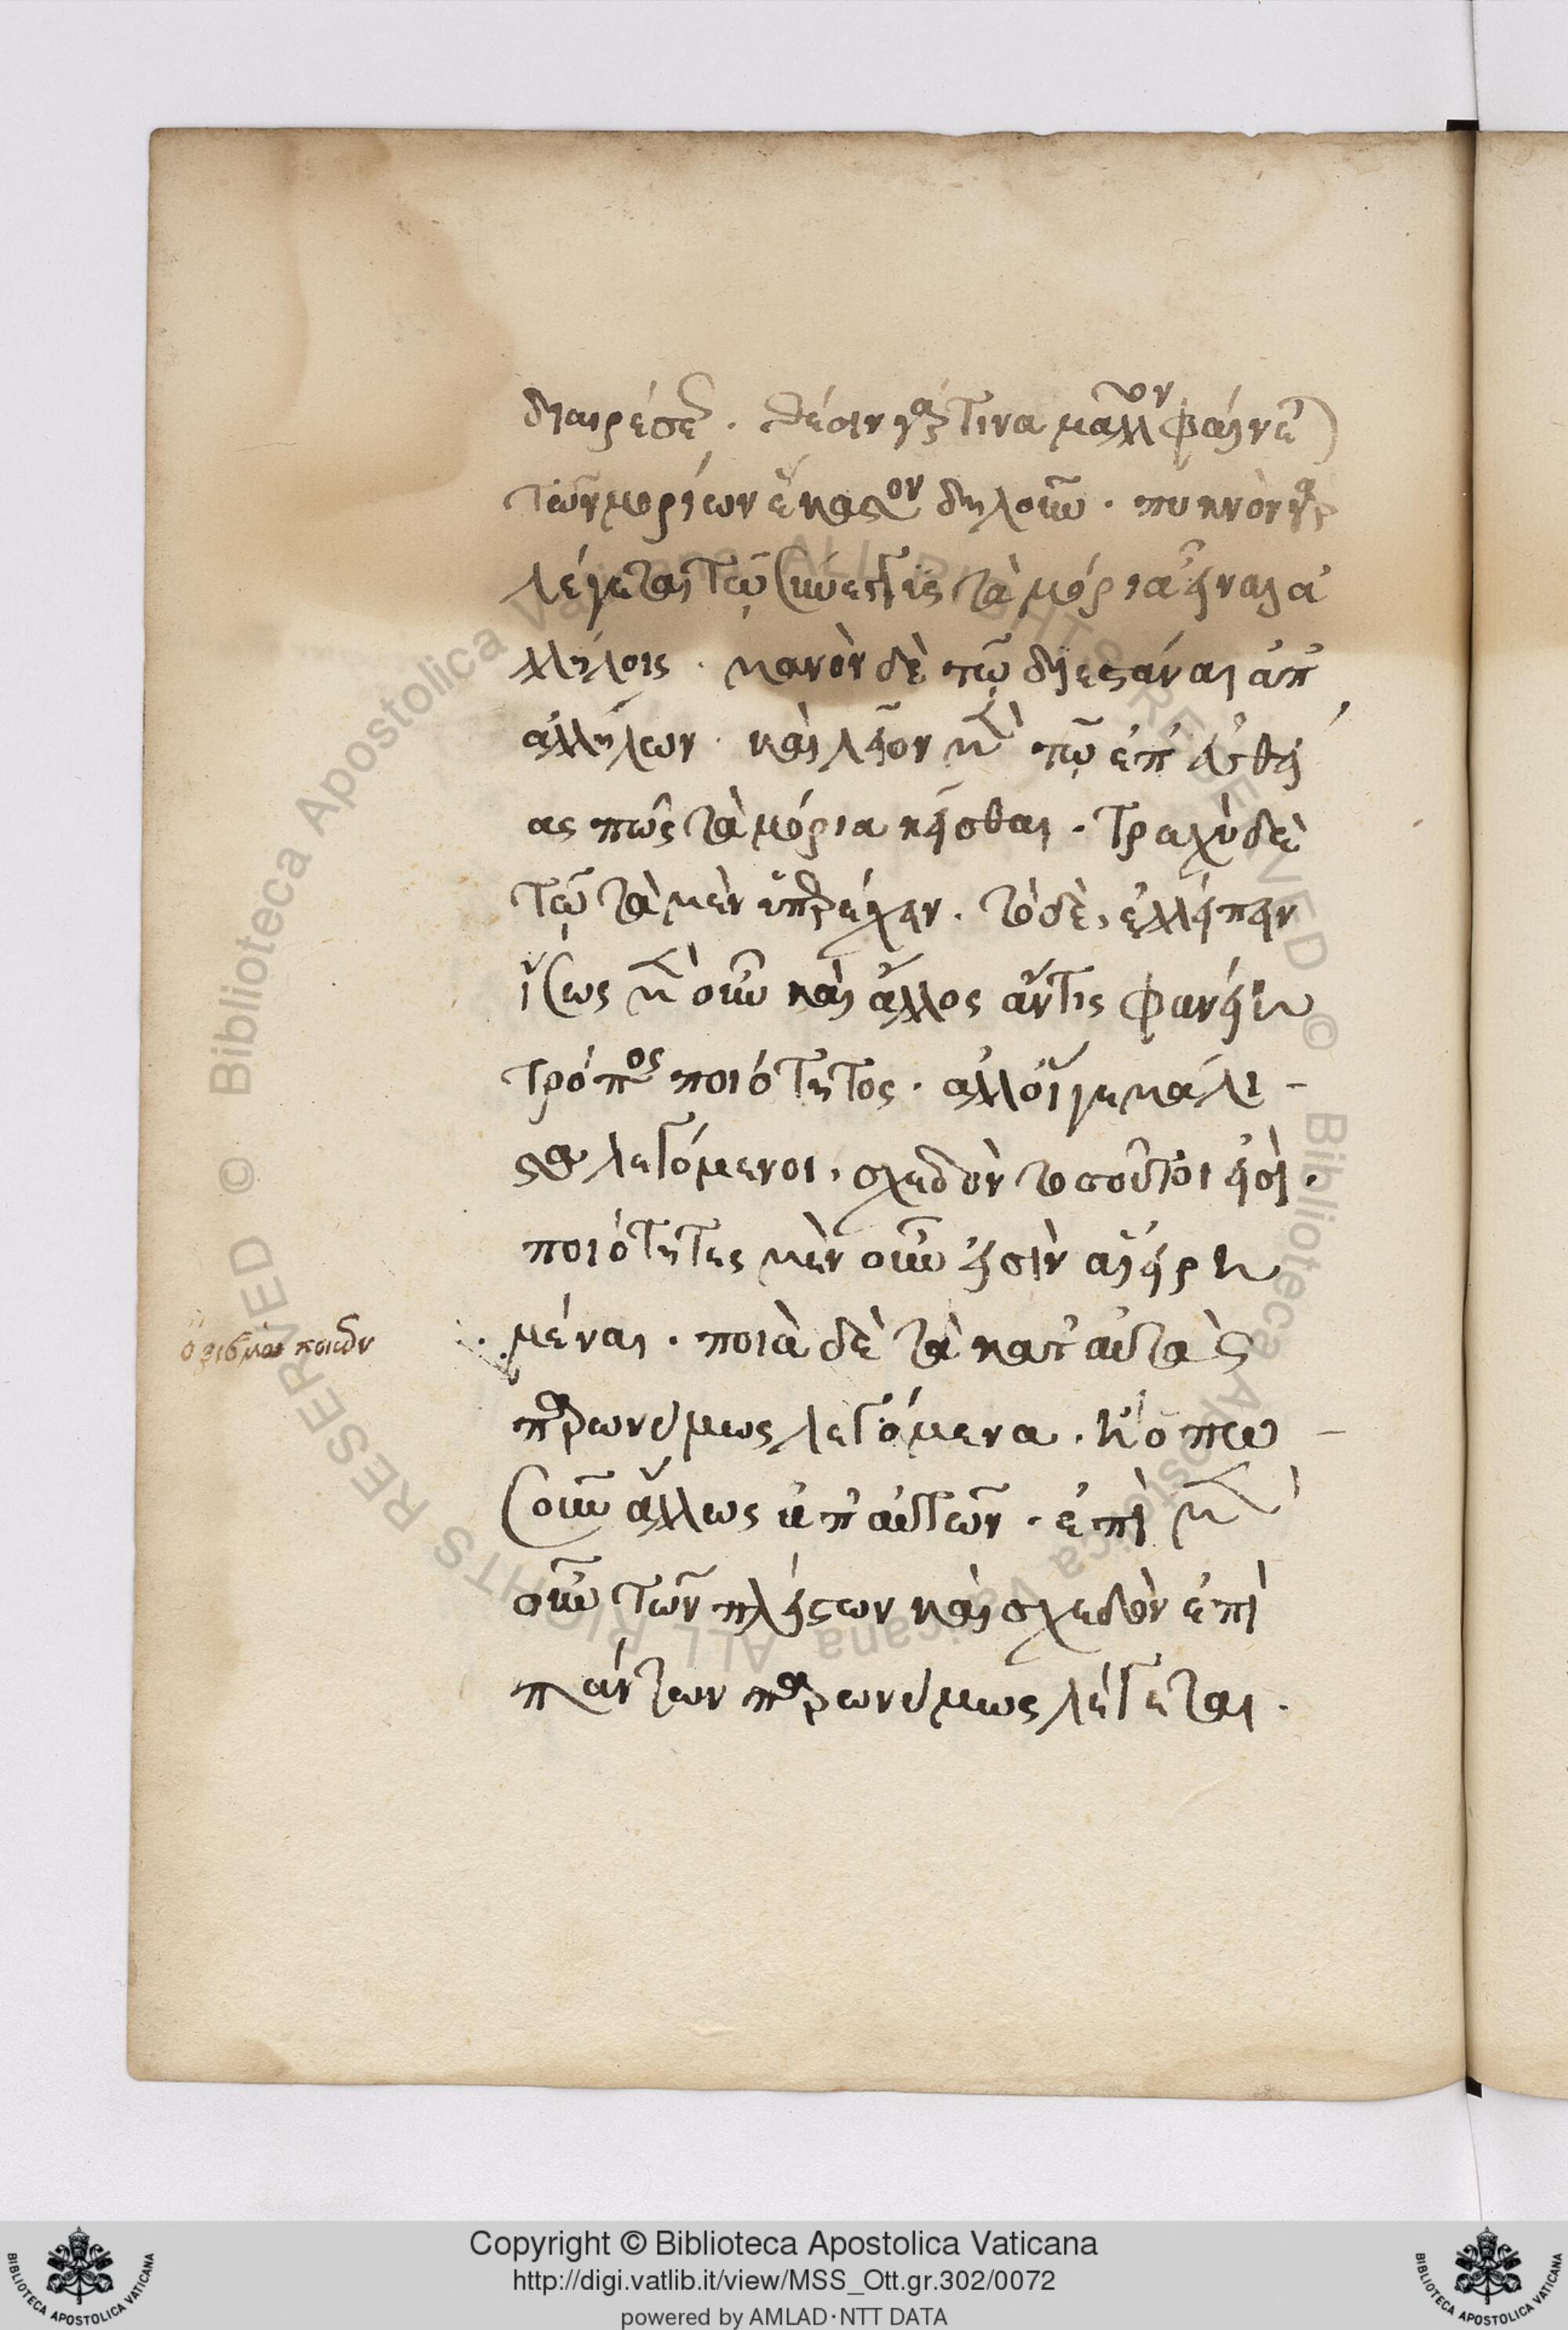 διαιρέσεως· θέσιν γάρ τινα μᾶλλον φαίνεται
τῶν μορίων ἑκάτερον δηλοῦν· πυκνὸν γὰρ
λέγεται τῷ σύνεγγυς τὰ μόρια εἶναι ἀ
λλήλοις· μανὸν δὲ τῷ διεστάναι ἀπ'
ἀλλήλων· καὶ λεῖον μὲν τῷ ἐπ' εὐθεί
ας πως τὰ μόρια κεῖσθαι· τραχὺ δὲ
τῷ τὰ μὲν ὑπερέχειν· τὸ δὲ, ἐλλείπειν
ἴσως μὲν οὖν καὶ ἄλλος ἄν τις φανείη
τρόπος ποιότητος· ἀλλ' οἵ γε μάλι-
στα λεγόμενοι, σχεδὸν τοσοῦτοι εἰσί·
ποιότητες μὲν οὖν εἰσὶν αἱ εἰρη
μέναι· ποιὰ δὲ τὰ κατ' αὐτὰς
παρωνύμως λεγόμενα· ἢ ὁπω-
σοῦν ἄλλως ἀπ' αὐτῶν· ἐπὶ μὲν
οὖν τῶν πλείστων καὶ σχεδὸν ἐπὶ
πάντων παρωνύμως λέγεται·
ὁρισμὸς ποιῶν
Copyright © Biblioteca Apostolica Vaticana
http://digi.vatlib.it/view/MSS_Ott.gr.302/0072
powered by AMLAD·NTT DATA
BIBLIOTECA APOSTOLICA VATICANA
BIBLIOTECA APOSTOLICA VATICANA
© Biblioteca Apostolica Vaticana ALL RIGHTS RESERVED © Biblioteca Apostolica Vaticana ALL RIGHTS RESERVED